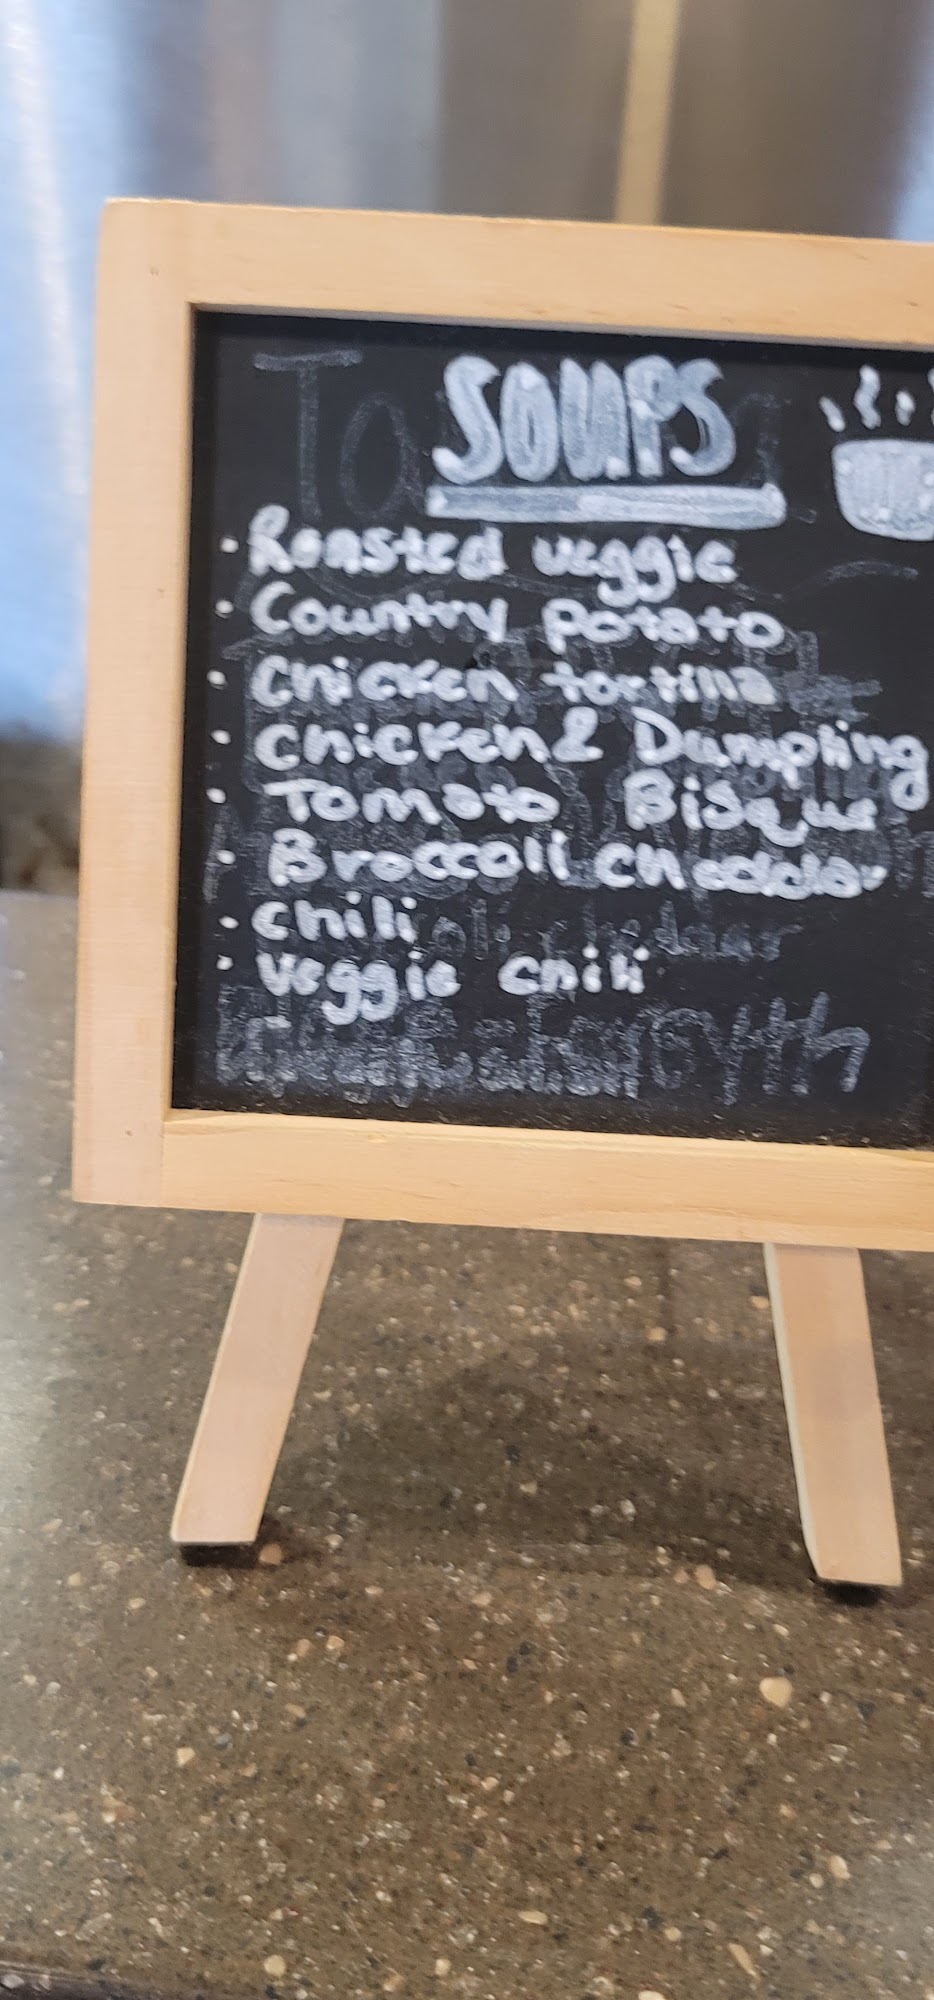 SOUPS
• Roasted veggie
• Country potato
• Chicken tortilla
• Chicken & Dumpling
• Tomato Bisque
• Broccoli cheddar
• Chili
• Veggie chili